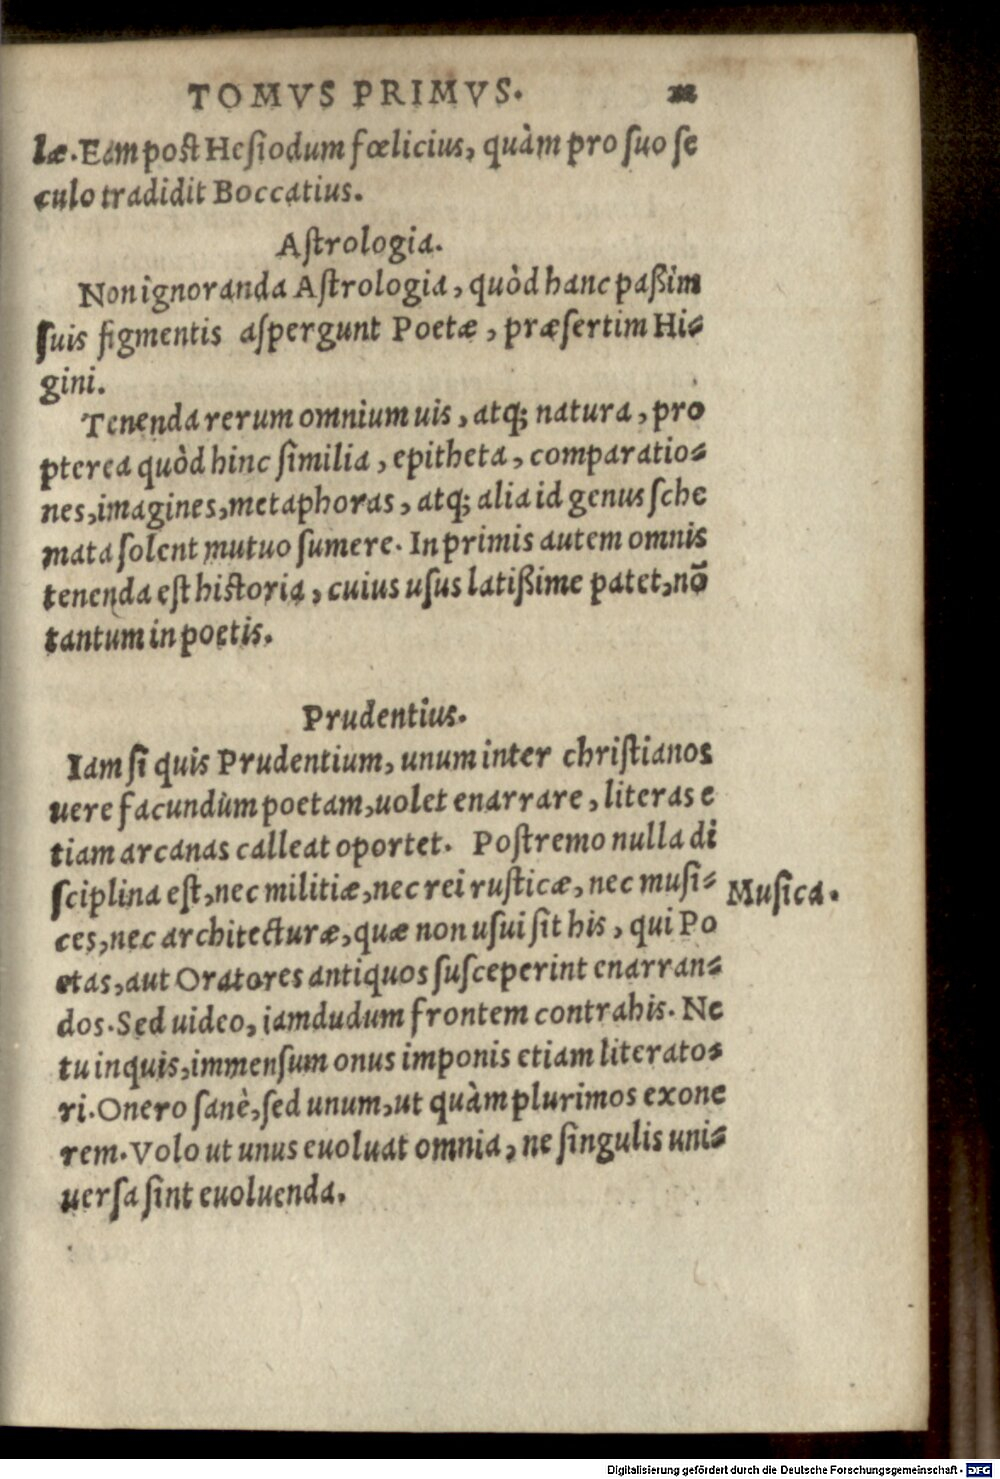 TOMVS PRIMVS.
læ. Eam post Hesiodum fœlicius, quàm pro suo se
culo tradidit Boccatius.
Astrologia.
Non ignoranda Astrologia, quòd hanc paßim
suis figmentis aspergunt Poetæ, præsertim Hi-
gini.
Tenenda rerum omnium uis, atq; natura, pro
pterea quòd hinc similia, epitheta, comparatio-
nes, imagines, metaphoras, atq; alia id genus sche
mata solent mutuo sumere. In primis autem omnis
tenenda est historia, cuius usus latißime patet, nõ
tantum in poetis.
Prudentius.
Iam si quis Prudentium, unum inter christianos
uere facundùm poetam, uolet enarrare, literas e
tiam arcanas calleat oportet. Postremo nulla di
sciplina est, nec militiæ, nec rei rusticæ, nec musi-
Musica.
ces, nec architecturæ, quæ non usui sit his, qui Po
etas, aut Oratores antiquos susceperint enarran-
dos. Sed uideo, iamdudum frontem contrahis. Ne
tu inquis, immensum onus imponis etiam literato-
ri. Onero sanè, sed unum, ut quàm plurimos exone
rem. Volo ut unus euoluat omnia, ne singulis uni-
uersa sint euoluenda.
Digitalisierung gefördert durch die Deutsche Forschungsgemeinschaft - DFG